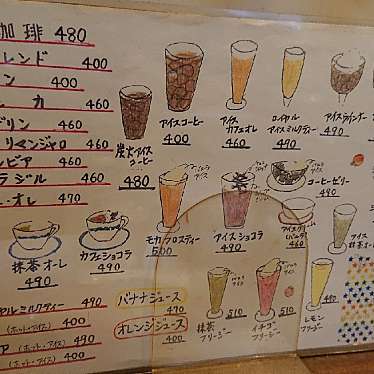 珈琲 480
レンド 400
ン 400
カ 460
ブリン 460
リマンジャロ 460
ンビア 460
ラジル 460
・オレ 490
炭火アイスコーヒー
480
アイスコーヒー
400
アイス
カフェオレ
460
ロイヤル
アイスミルクティー
490
アイスウインナー
490
モカフロスティー
500
アイスショコラ
490
コーヒーゼリー
490
460
アイス
抹茶オーレ
抹茶オーレ
490
カフェショコラ
490
ヤルミルクティー 490
(ホット・アイス) 400
ア (ホット・アイス) 490
(ホット・アイス) 400
バナナジュース
490
オレンジジュース
400
抹茶
フリージー
510
イチゴ
フリージー
510
レモン
フリージー